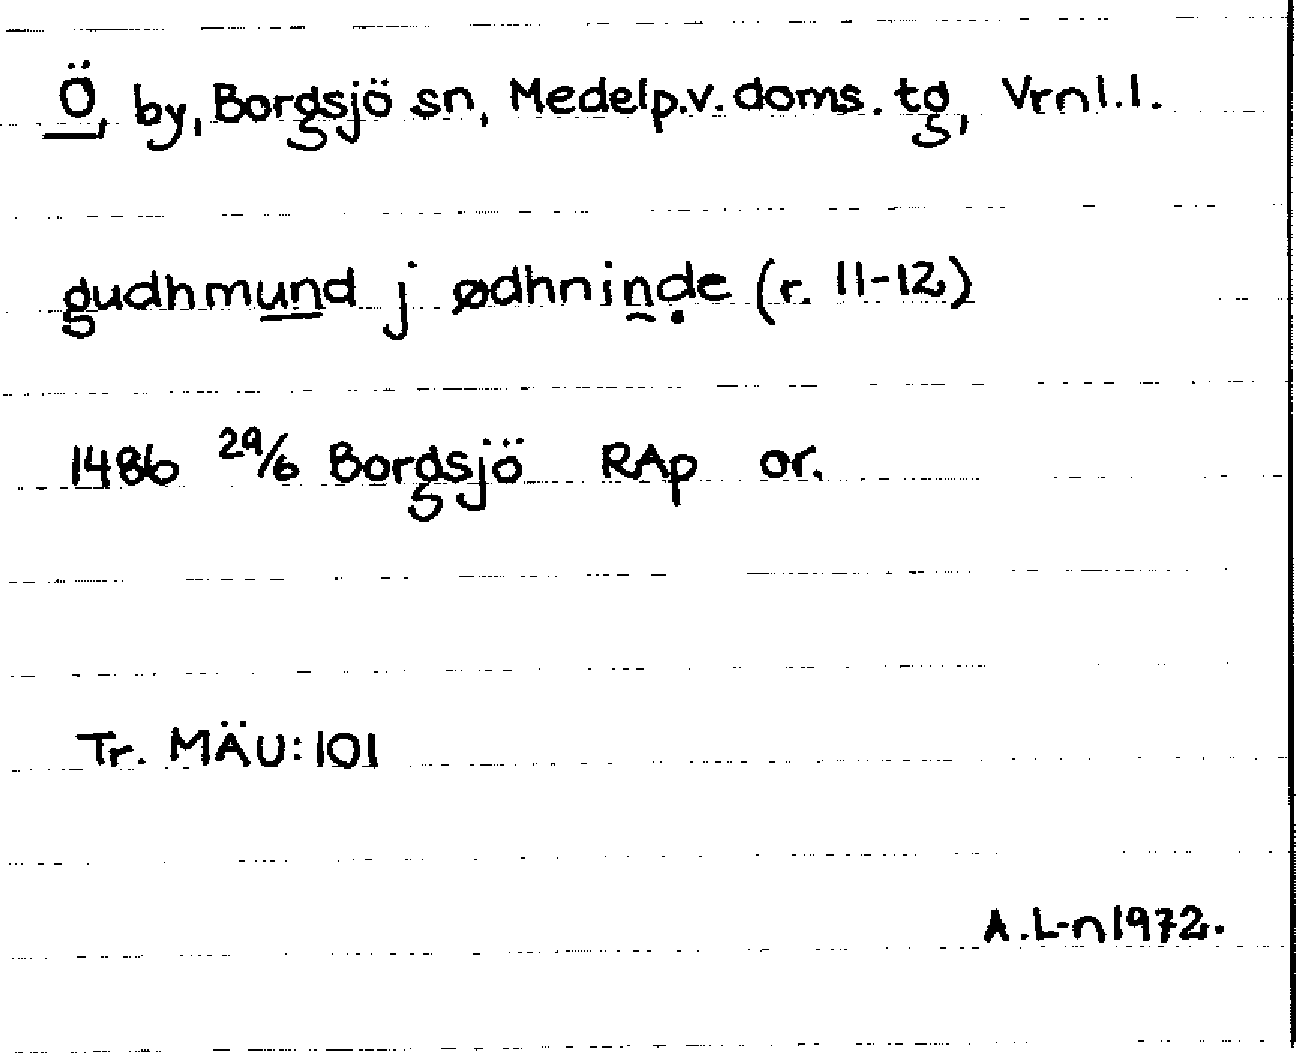 Ö, by, Borgsjö sn, Medelp.v.doms.tg, Vrnl.l.
gudhmund j ødhninde (r. 11-12)
1486 29/6 Borgsjö RAp or.
Tr. MÄU:101
A.L-n 1972.